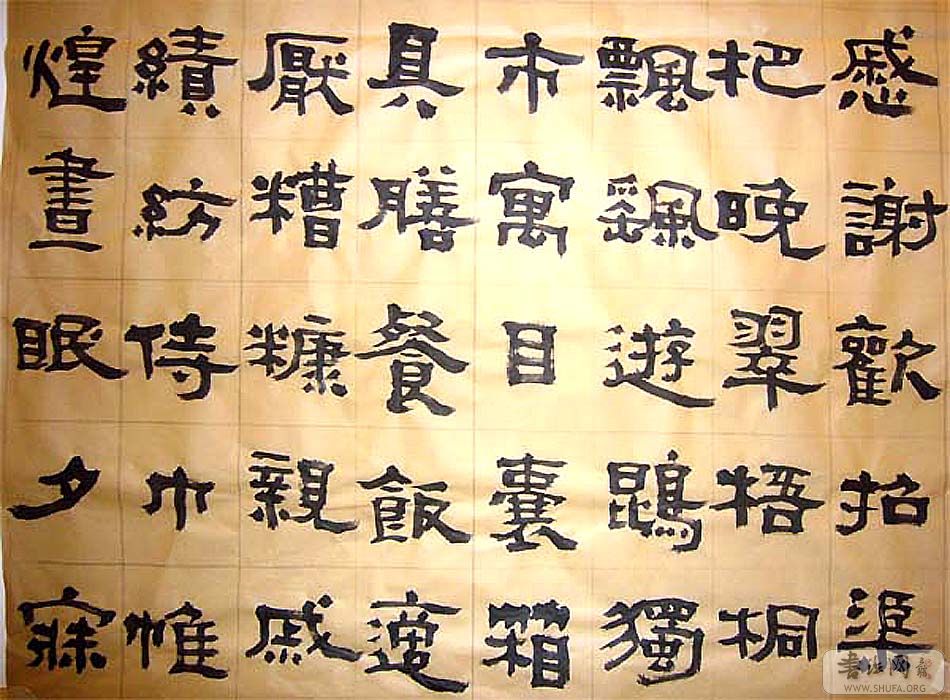 慼謝歡招渠
杷晚翠梧桐
飄颻遊鵾獨
市寓目囊箱
具膳餐飯適
厭糟糠親戚
績紡侍巾帷
煌晝眠夕寐
WWW.SHUFA.ORG